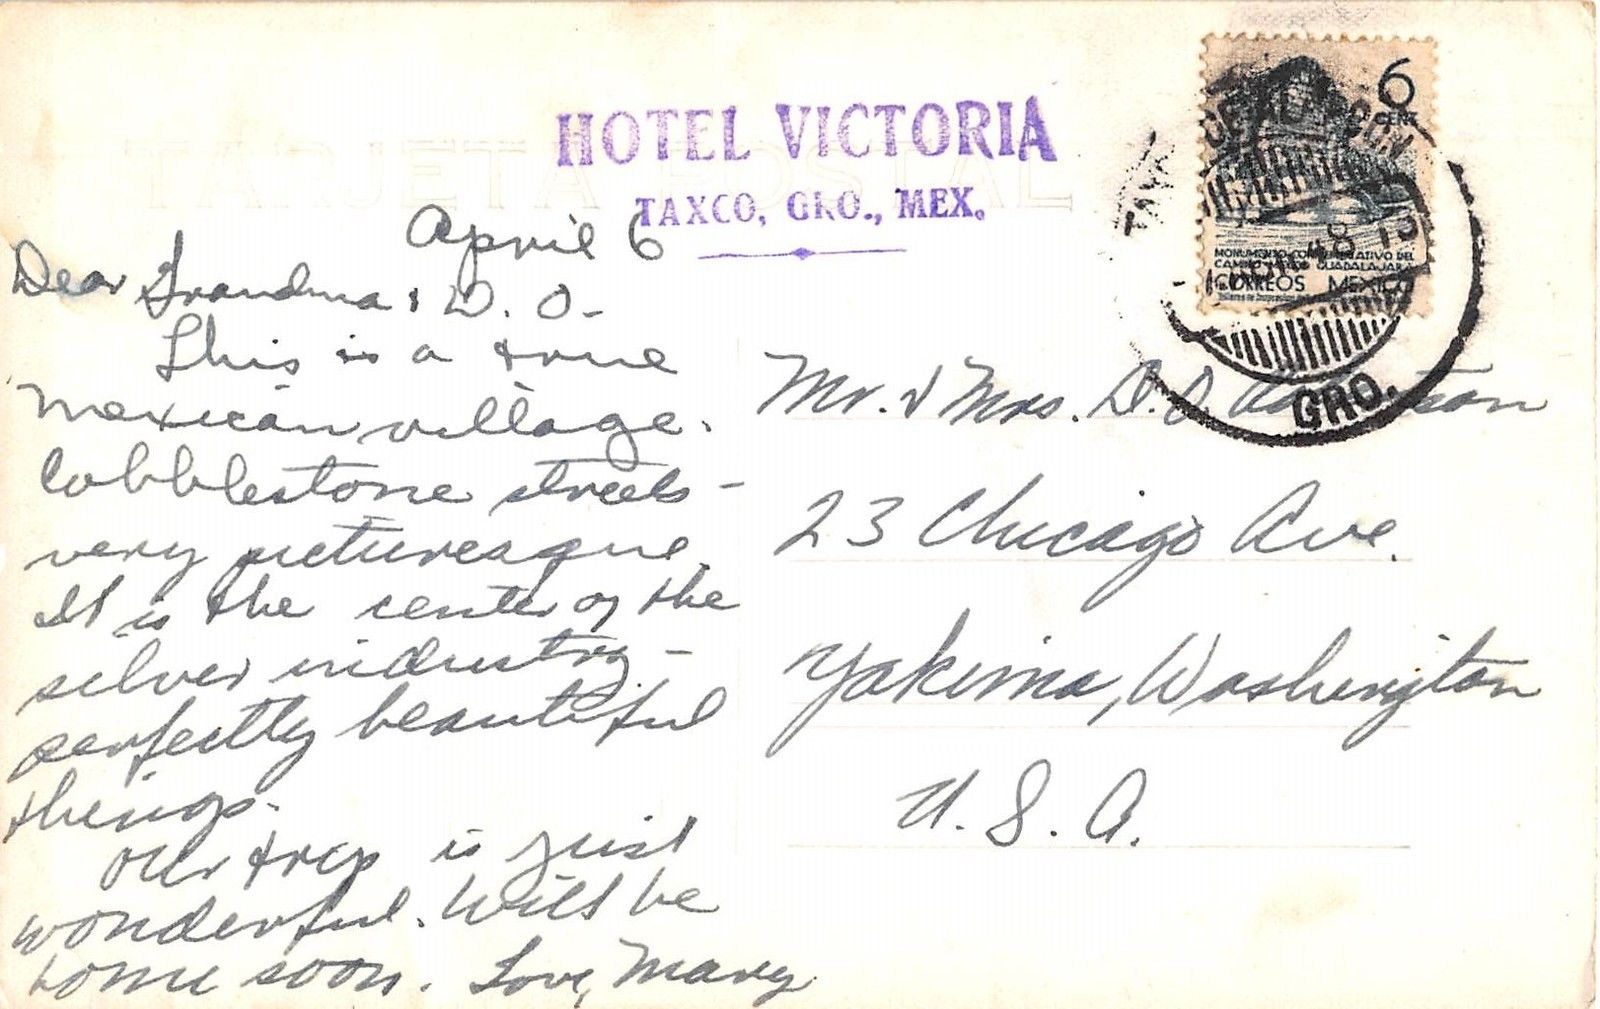 TARJETA POSTAL
HOTEL VICTORIA
TAXCO, GRO., MEX.
6
CENT.
MONUMENTO CONMEMORATIVO DEL
GUADALAJARA
CORREOS MEXICO
TAXCO DE ALARCON
48
GRO.
April 6
Dear Grandma & D. O-
This is a true
Mexican village.
Cobblestone streets -
very picturesque.
It is the center of the
silver industry -
perfectly beautiful
things.
Our trip is just
wonderful. Will be
home soon. Love, Mary
Mr. & Mrs. D.O.
23 Chicago Ave.
Yakima, Washington
U. S. A.